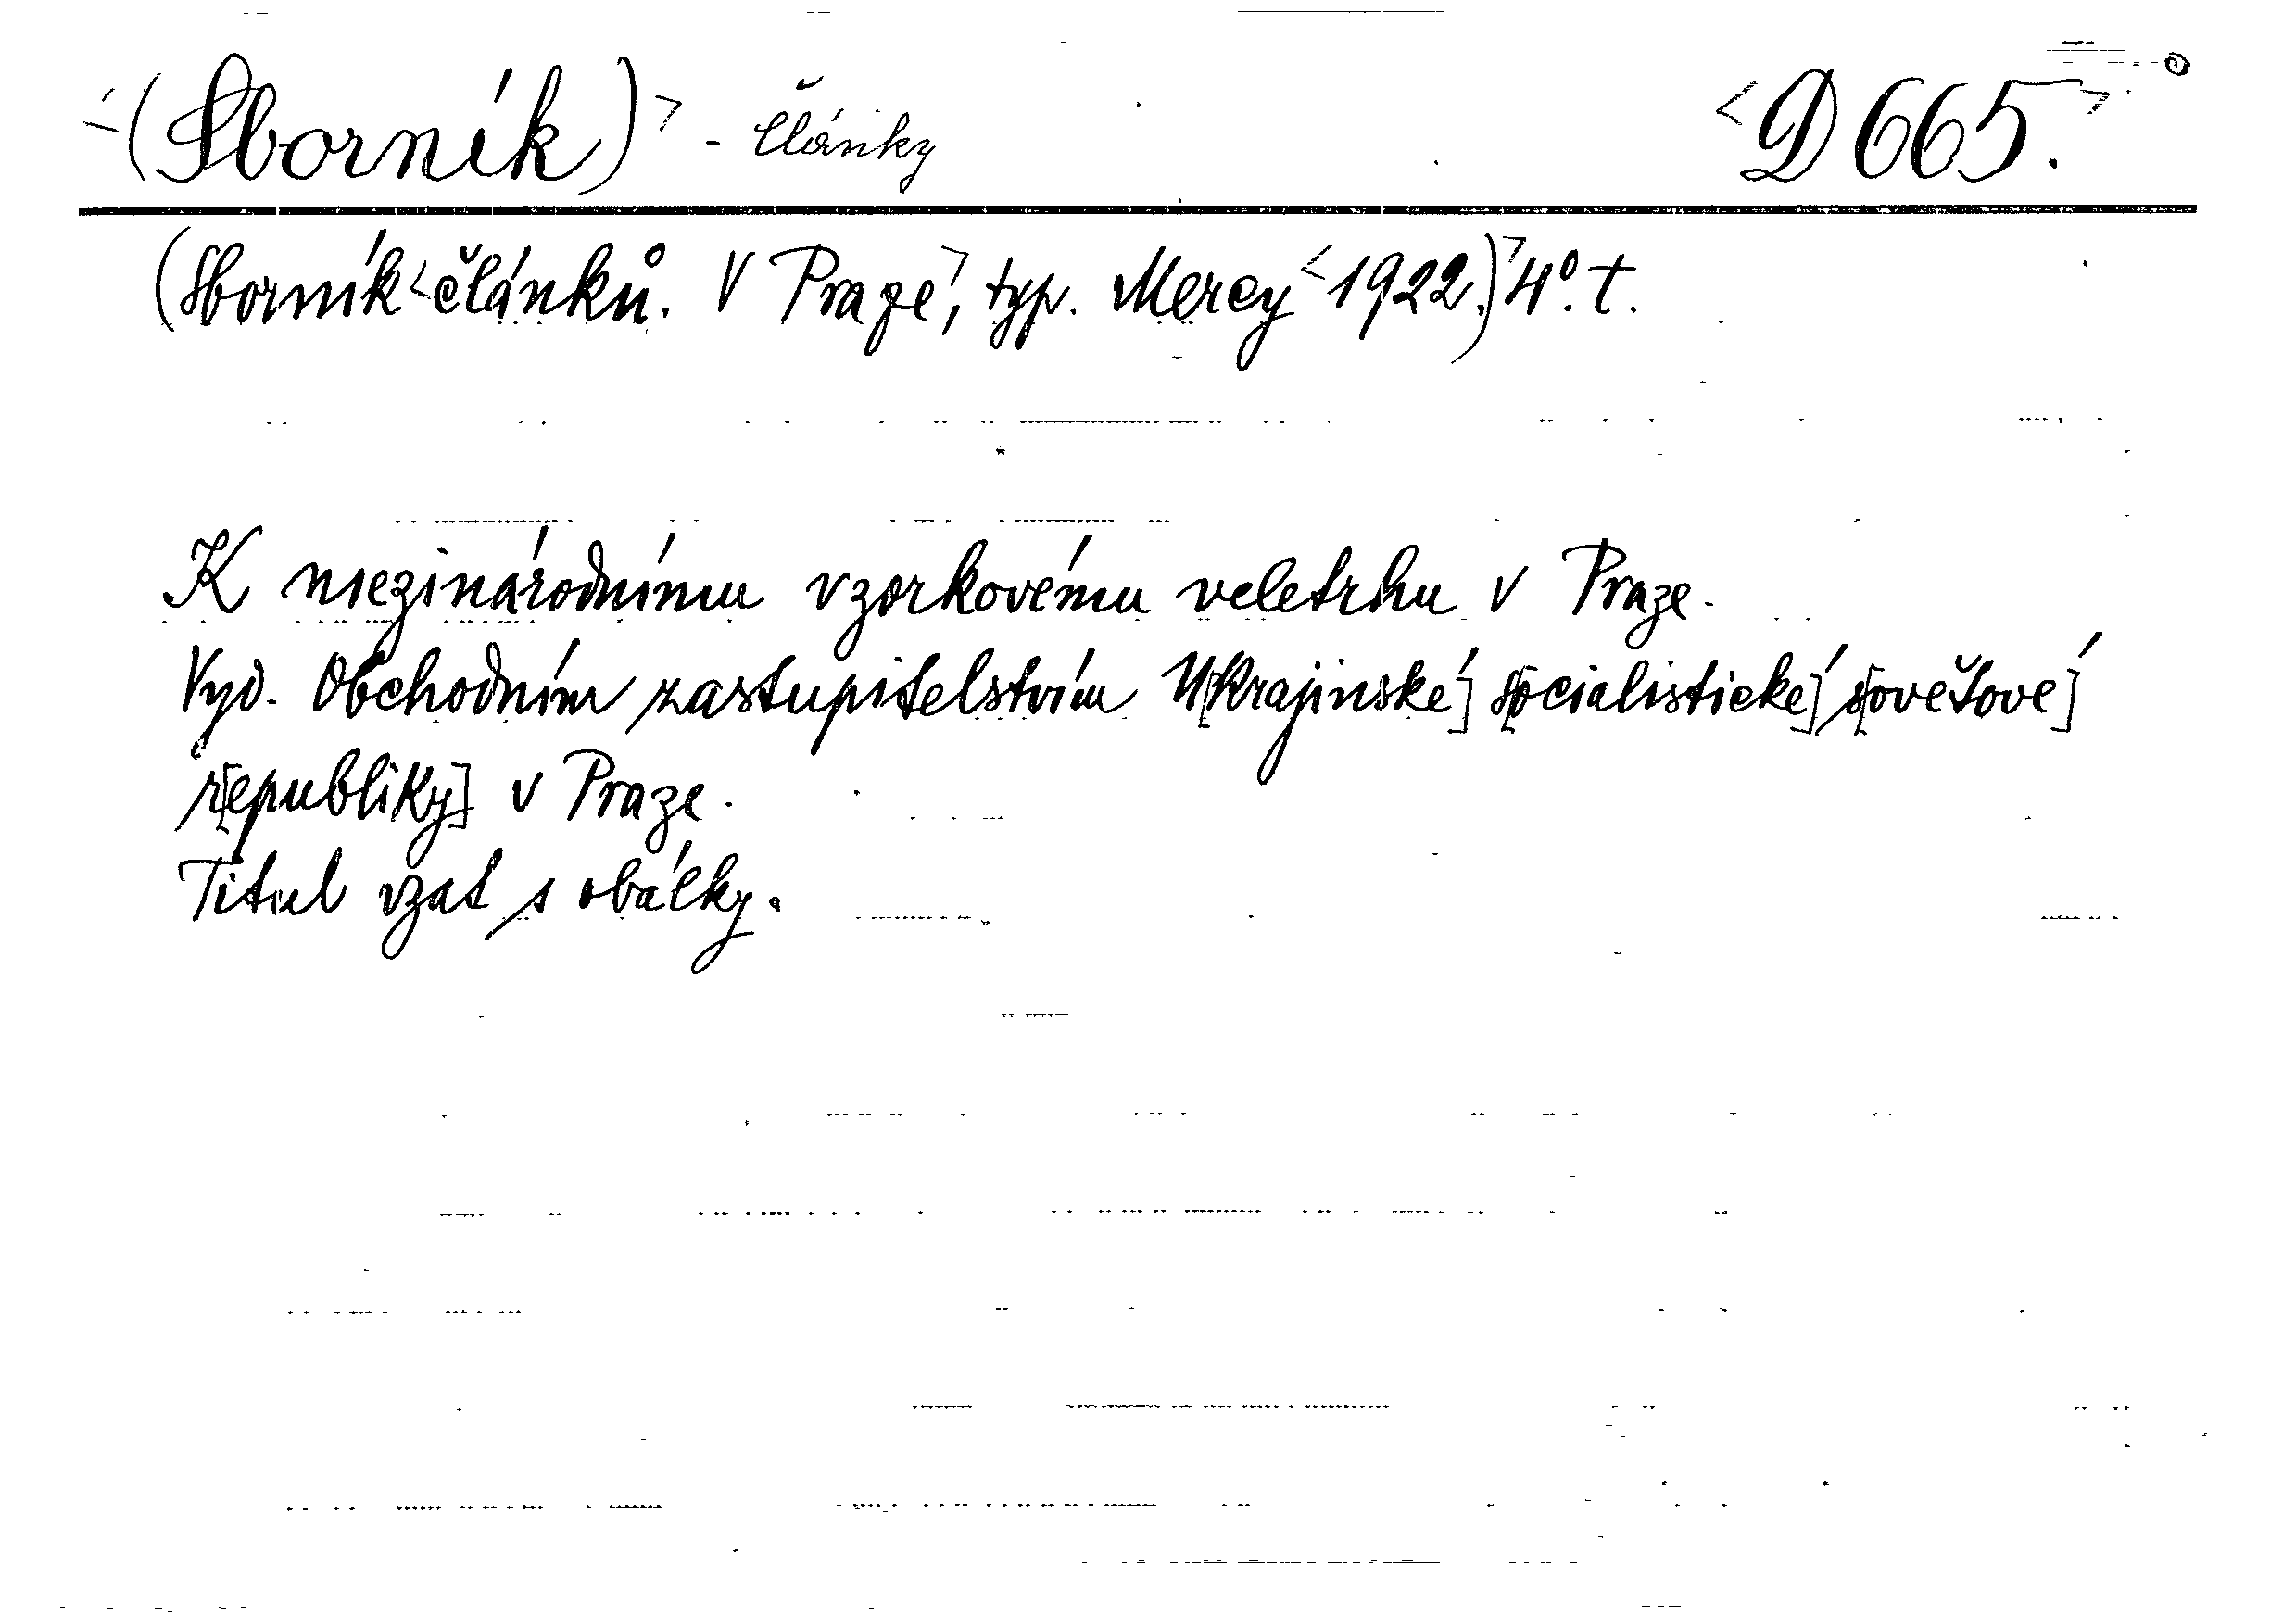 <(Sborník)> - články <D 665.>
(Sborník <článků. V Praze>, typ. Mercy <1922.)> 4°. t.
K mezinárodnímu vzorkovému veletrhu v Praze.
Vyd. Obchodním zastupitelstvím U[krajinské] s[ocialistické] s[ovětové]
r[epubliky] v Praze.
Titul vzat s obálky.